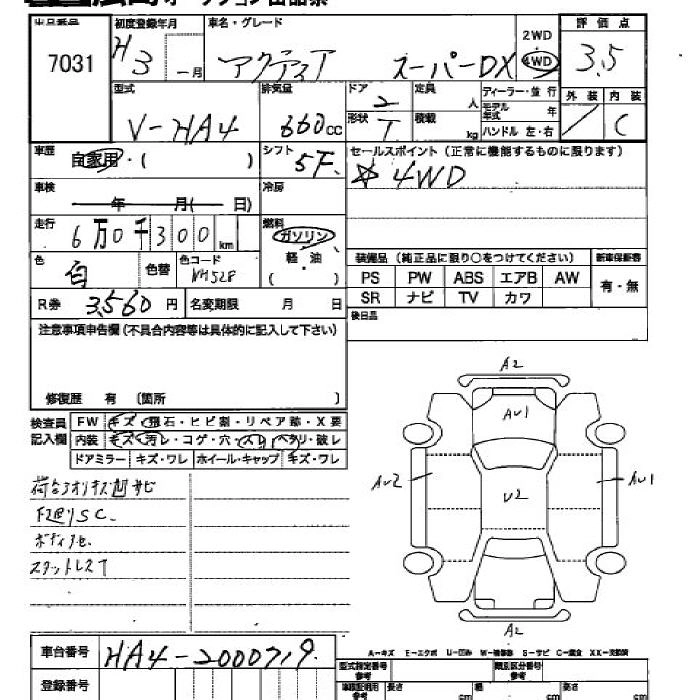 出品番号 初度登録年月 車名・グレード 2WD 評価点
7031 H3 一月 アクティ スーパーDX 4WD 3.5
型式 排気量 ドア 定員 ディーラー・並行 外装 内装
V-HA4 660cc 2 人 モデル年式 年 / C
形状 T 積載 kg ハンドル 左・右
車歴 自家用・( ) シフト 5F セールスポイント (正常に機能するものに限ります)
☆ 4WD
車検 年 月( 日) 冷房
走行 6万0千300km 燃料 ガソリン
軽油
( )
色 白 色替 色コード NH528
装備品 (純正品に限り○をつけてください) 新車保証書
PS PW ABS エアB AW 有・無
SR ナビ TV カワ
R券 3,560円 名変期限 月 日
後日品
注意事項申告欄(不具合内容等は具体的に記入して下さい)
修復歴 有 〔箇所 〕
検査員記入欄 FW キズ・飛石・ヒビ割・リペア跡・X要
内装 キズ・汚レ・コゲ・穴・スレ・ヘタリ・破レ
ドアミラー キズ・ワレ ホイール・キャップ キズ・ワレ
サビ
スタットレスT
A2
AU1
AU2 U2 AU1
A2
A-キズ E-エクボ U-凹み W-補修跡 S-サビ C-腐食 XX-交換済
車台番号 HA4-2000719
登録番号
型式指定番号 参考 類別区分番号 参考
車検証明用 参考 長さ cm 幅 cm 高さ cm